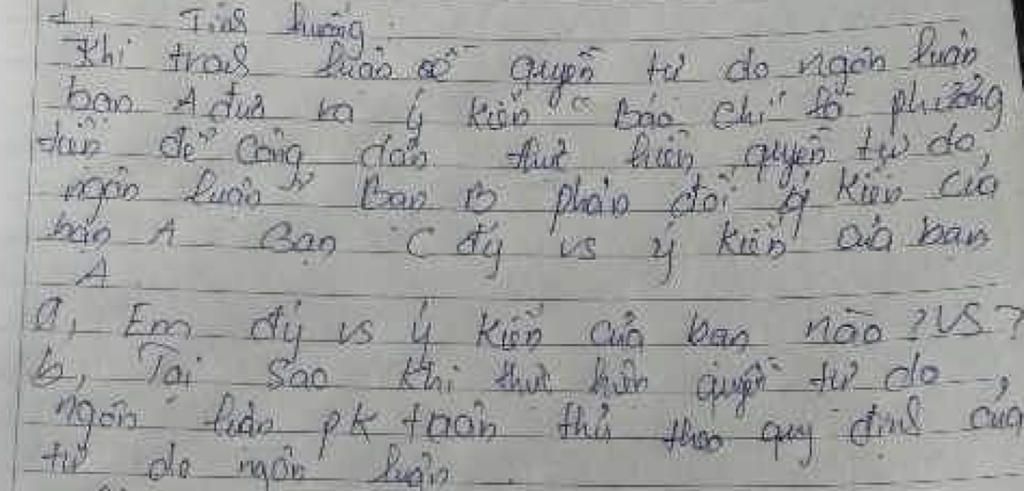 1, Tình huống :
Khi tranh luận về quyền tự do ngôn luận
bạn A đưa ra ý kiến "Báo chí là phương
tiện để công dân thực hiện quyền tự do,
ngôn luận" Bạn B phản đối ý kiến của
bạn A Bạn C đý vs ý kiến của bạn
A
a, Em đý vs ý kiến của bạn nào ? VS ?
b, Tại sao khi thực hiện quyền tự do,
ngôn luận pk tuân thủ theo quy định của
tự do ngôn luận.